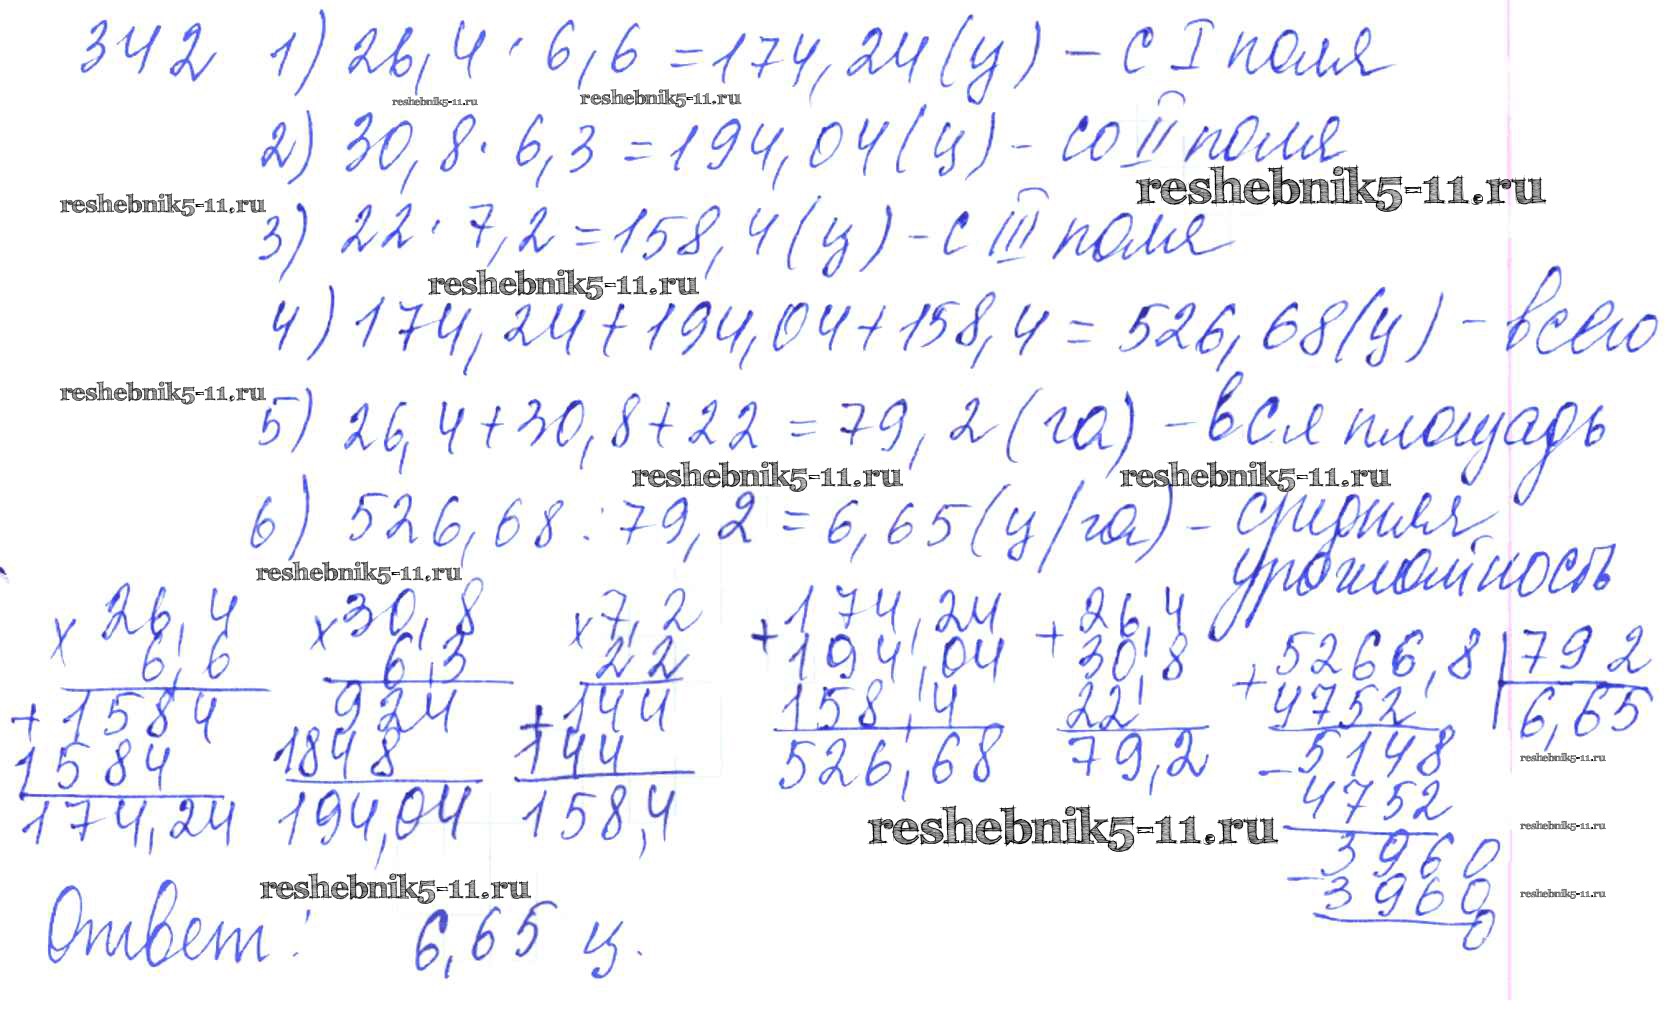 342 1) 26,4 · 6,6 = 174,24 (ц) – с I поля
reshebnik5-11.ru reshebnik5-11.ru
2) 30,8 · 6,3 = 194,04 (ц) – со II поля
reshebnik5-11.ru
reshebnik5-11.ru
3) 22 · 7,2 = 158,4 (ц) – с III поля
reshebnik5-11.ru
4) 174,24 + 194,04 + 158,4 = 526,68 (ц) – всего
reshebnik5-11.ru
5) 26,4 + 30,8 + 22 = 79,2 (га) – вся площадь
reshebnik5-11.ru reshebnik5-11.ru
6) 526,68 : 79,2 = 6,65 (ц/га) – средняя
урожайность
reshebnik5-11.ru
× 26,4 × 30,8 × 7,2 + 174,24 + 26,4
6,6 6,3 22 194,04 30,8 + 5266,8 792
+ 1584 924 + 144 158,4 22 4752 6,65
1584 1848 144 526,68 79,2 – 5148
reshebnik5-11.ru
174,24 194,04 158,4 4752
reshebnik5-11.ru reshebnik5-11.ru
– 3960
3960
reshebnik5-11.ru reshebnik5-11.ru
0
Ответ: 6,65 ц.